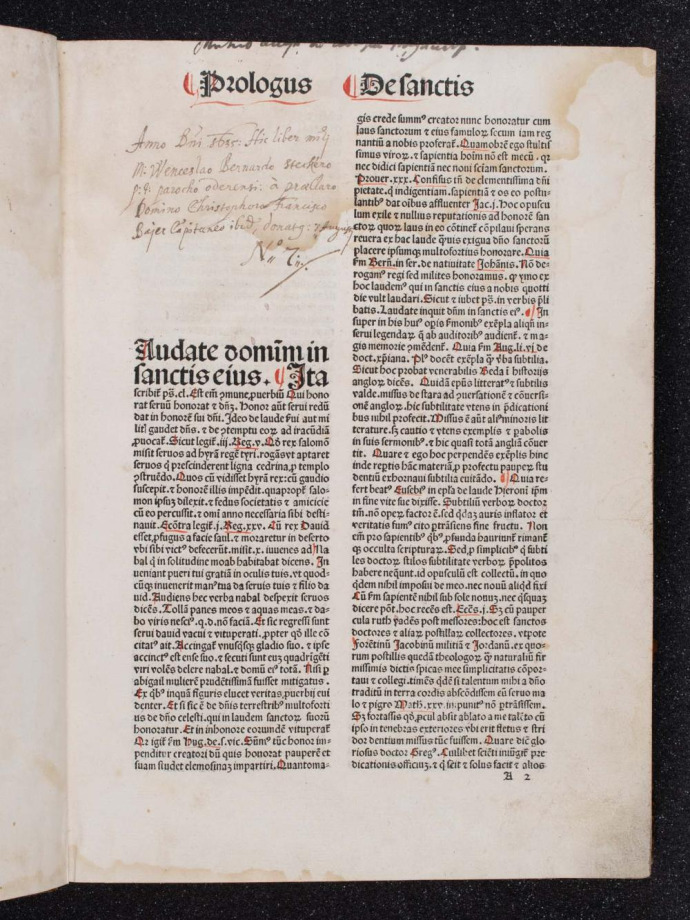 Prologus De sanctis
Anno Dni 1635: Hic liber mihi
M: Wenceslao Bernardo
p: t: parocho oderensi: à præclaro
Domino Christophoro Francisco
Bajer Capitaneo ibid, donatq:
Audate domīm in
sanctis eius. Ita
scribit̄ ps̄. cl. Est em̄ ꝯmune ꝓuerbiū Qui hono
rat seruū honorat ⁊ dn̄ꝫ. Honor aūt serui redū
dat in honorē sui dn̄i. Ideo de laude
gaudet dn̄s. ⁊ de ꝯtemptu eoꝝ ad iracūdiā
ꝓuocat̄. Sicut legit̄. iij. Reg. v. ꝙ rex salomō
misit seruos ad hyrā regē tyri rogās vt aptaret
seruos q̄ prescinderent ligna cedrina ꝓ templo
ꝯstruēdo. Quos cū vidisset hyrā rex: cū gaudio
suscepit. ⁊ honorē illis impēdit. quapropt̄ salo-
mon ipsuꝫ dilexit. ⁊ fedus societatis ⁊ amicicie
cū eo percussit. ⁊ omī anno necessaria sibi desti-
nauit. Ecōtra legit̄. j. Reg. xxv. Cū rex Dauid
esset ꝓfugus a facie saul. ⁊ moraretur in deserto
vbi sibi victꝰ defecerūt. misit. x. iuuenes ad Na
bal q̄ in solitudine moab habitabat dicens. In
ueniant pueri tui gratiā in oculis tuis. vt quod-
cūqꝫ inuenerit manꝰ tua da seruis tuis ⁊ filio da
uid. Audiens hec verba nabal despexit seruos
dicēs. Tollā panes meos ⁊ aquas meas. ⁊ da-
bo viris nescīꝰ. q. d. nō faciā. Et sic regressi sunt
serui dauid vacui ⁊ vituperati. ꝓpter qḋ ille cō
citatꝰ ait. Accingat̄ vnusqꝫsqꝫ gladio suo. ⁊ ipse
accinctꝰ est ense suo. ⁊ secuti sunt euꝫ quadrīgēti
viri volēs delere nabal. ⁊ domū eiꝰ totā. Nisi ꝑ
abigail mulierē prudētissimā fuisset mitigatus.
Ex qḃꝰ in qua figuris elucet veritas ꝓuerbij eui
denter. Et si sic ē de dn̄is terrestribꝰ multoforti
us de dn̄o celesti. qui in laudem sanctoꝝ suorū
honoratur. Et in inhonore eorundē vituperat̄
Qꝛ igit̄ ẜm Hug. de. s. vic. Sūmꝰ tūc honor im-
penditur creatori dū quis honorat pauperē et
suam studet elemosinaꝫ impartiri. Quantoma-
gis crede summꝰ creator nunc honoratur cum
laus sanctorum ⁊ eius famuloꝝ secum iam reg
nantiū a nobis proferat̄. Quamobrē ego stultis
simus viroꝝ. ⁊ sapientia hoīm nō est mecū. qꝛ
nec didici sapientiā nec noui sciam sanctorum.
Prouer. xxx. Confisus tn̄ de clementissima dn̄i
pietate. q̄ indigentiam. sapientiā ⁊ os eo postu
lantibꝰ dat oībus affluenter Jac. j. hoc opuscu
lum exile ⁊ nullius reputationis ad honorē san
ctoꝝ quoꝝ laus in eo cōtinet̄ cōpilaui sperans
reuera ex hac laude q̄uis exigua dn̄o sanctorū
placere ipsumqꝫ multofortius honorare. Quia
ẜm Bern̄. in ser. de natiuitate Johānis. Nō de-
rogamꝰ regi sed milites honoramus. qꝛ ymo ex
hoc laudemꝰ qui in sanctis eius a nobis quotti
die vult laudari. Sicut ⁊ iubet ps̄. in verbis p̄li
batis. Laudate inquit dn̄m in sanctis eiꝰ. In
super in his huiꝰ opis ẜmonibꝰ exēpla aliqn̄ in-
serui legendaꝝ q̄ ab auditoribꝰ audient̄. ⁊ ma-
gis memorie ꝯmēdent̄. Quia ẜm Aug. li. vj. de
doct. xp̄iana. Plꝰ docēt exēpla q̄ꝫ vḃa subtilia.
Sicut hoc probat venerabilis Beda ī historijs
angloꝝ dicēs. Quidā ep̄us litteratꝰ ⁊ subtilis
valde. missus de stara ad ꝯuersationē ⁊ cōuersi-
onē angloꝝ. hic subtilitate vtens in p̄dicationi
bus nihil profecit. Missus ē aūt aliꝰ minoris lit
terature. sꝫ cautio ⁊ vtens exemplis ⁊ pabolis
in suis sermonibꝰ. ⁊ hic quasi totā angliā cōuer
tit. Quare ⁊ ego hoc perpendēs exēplis hinc
inde reptis hāc materiā ꝓ profectu pauperꝫ stu
dentiū exhornaui subtilia euitādo. Quia re-
fert beatꝰ Eusebiꝰ in epl̄a de laude Hieroni ip̄m
in fine vite sue dixisse. Subtiliū verboꝝ doctor
habere nequnt. id opusculū est collectū. in quo
qdem nihil imposui de meo. nec nouū aliqḋ fixi
Cū ẜm sapientē nihil sub sole nouuꝫ. nec q̄squaꝫ
dicere pōt. hoc recēs est. Eccs̄. j. Sꝫ cū pauper
cula ruth vadēs post messores: hoc est sanctos
doctores ⁊ aliaꝝ postillaꝝ collectores. vtpote
Jacobinū militiā ⁊ Jordanū. ex quo-
rum postillis quedā theologoꝝ q̄ꝫ naturaliū fir
missimis dictis spicas mee simplicitatis cōpor-
taui ⁊ collegi. timēs qdē si talentum mihi a dn̄o
traditū in terra cordis abscōdissem cū seruo ma
lo ⁊ pigro Math. xxv. in punitꝰ nō ptrāsissem.
ipso in tenebras exteriores vbi erit fletus ⁊ stri
dor dentium missus tūc fuissem. Quare dic̄ glo
riosus doctor Greg. Cuilibet
dicationis officiuꝫ. ⁊ q̄ scit ⁊ solus facit ⁊ alios
A 2